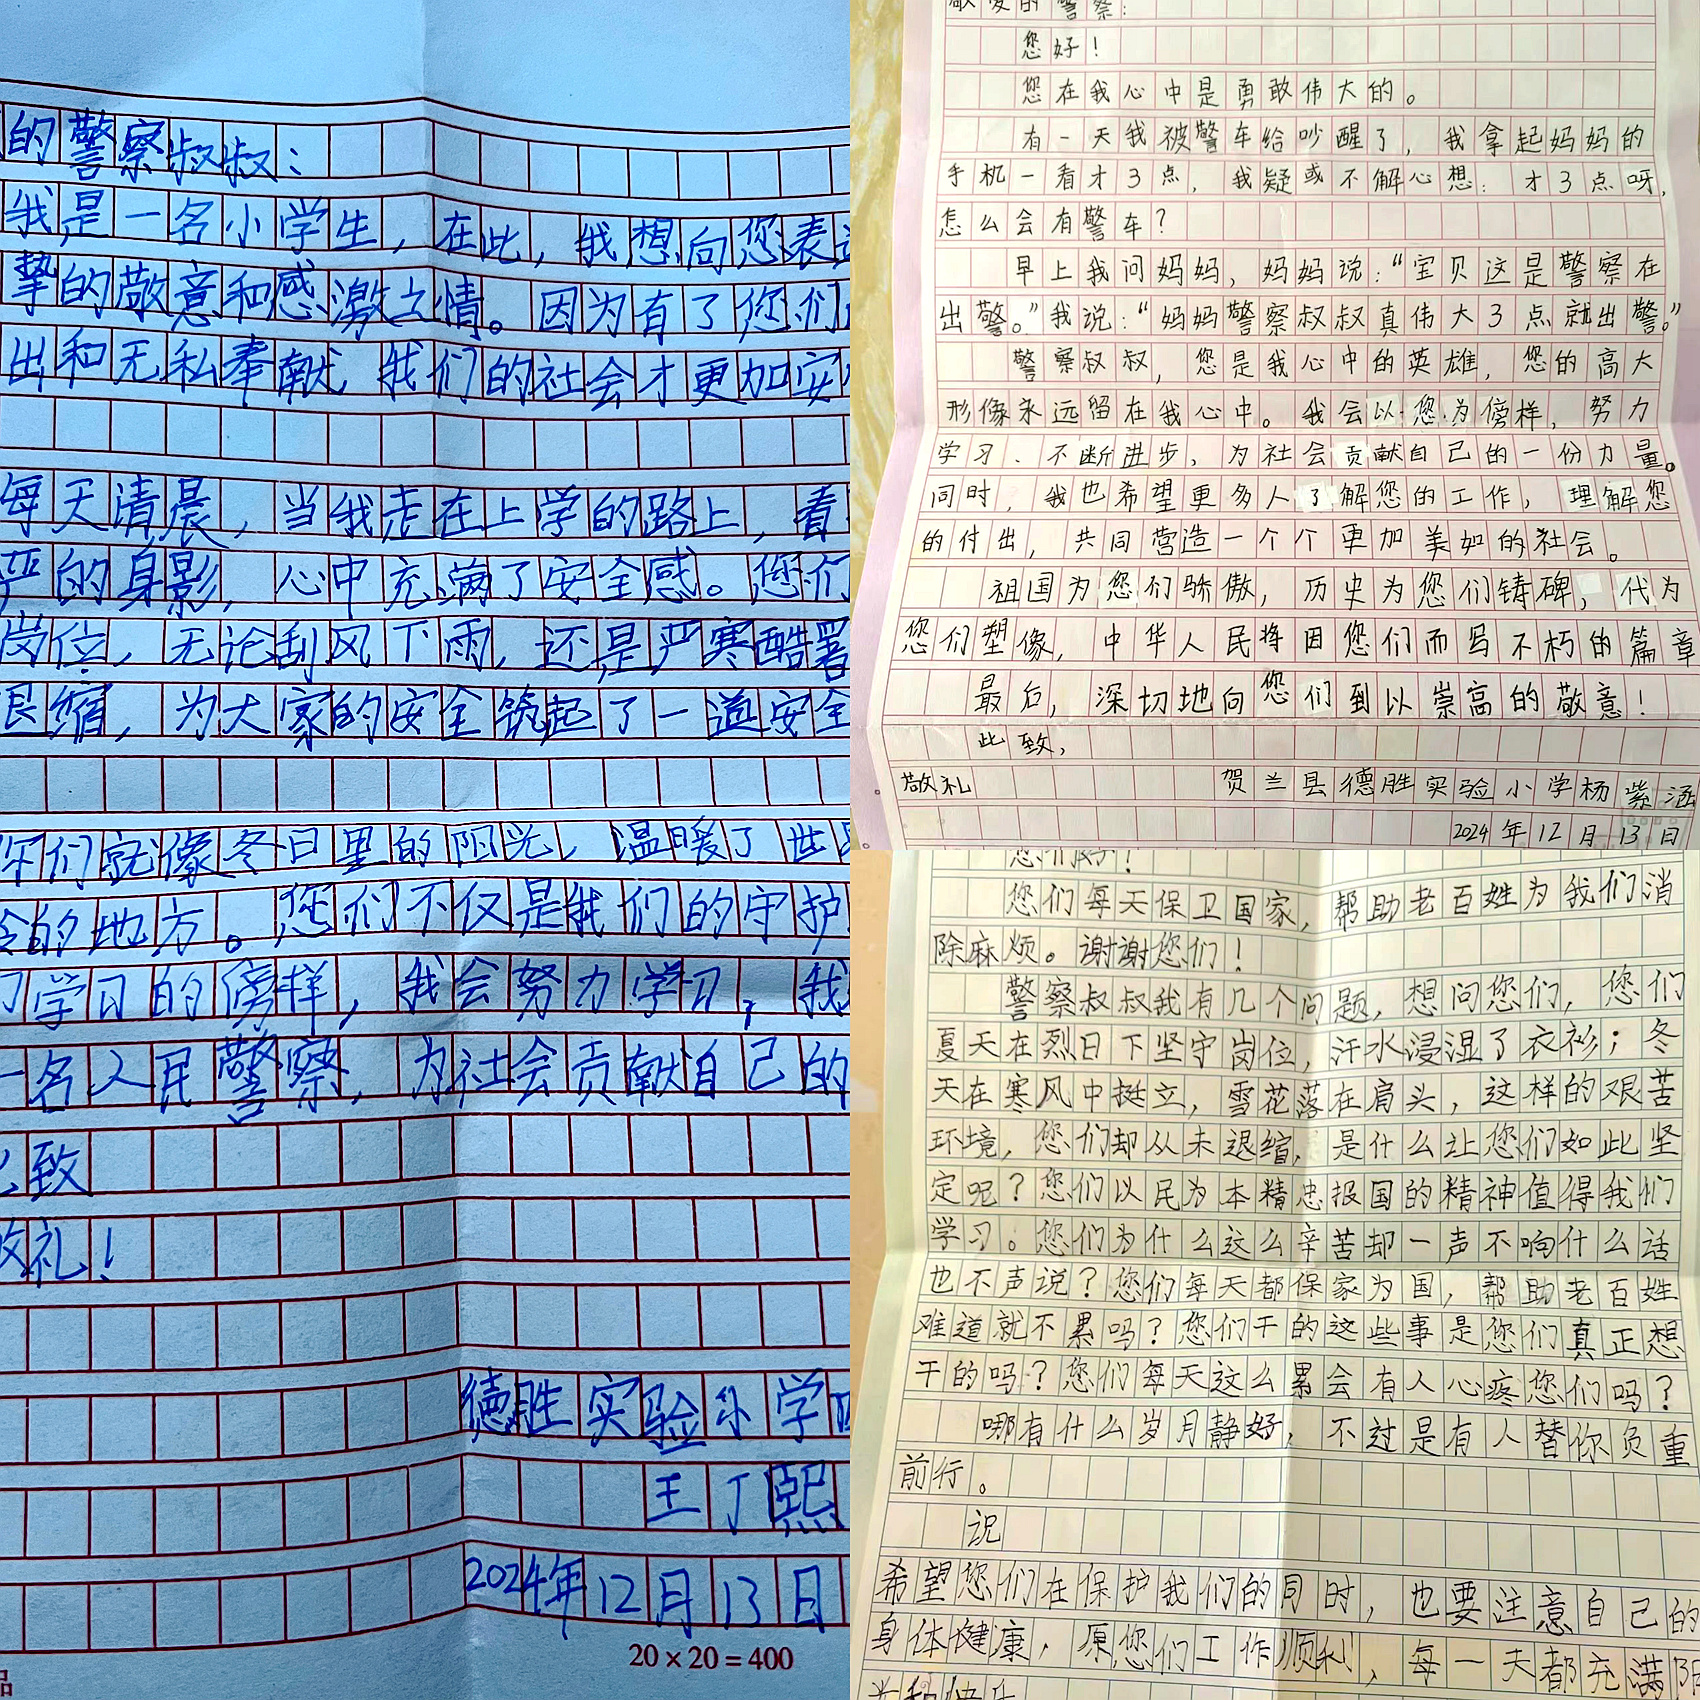 的警察叔叔：
我是一名小学生，在此，我想向您表
挚的敬意和感激之情。因为有了您们
出和无私奉献，我们的社会才更加安
每天清晨，当我走在上学的路上，看
严的身影，心中充满了安全感。您们
岗位，无论刮风下雨，还是严寒酷署
畏缩，为大家的安全筑起了一道安全
你们就像冬日里的阳光，温暖了世
的地方。您们不仅是我们的守护
们学习的傍样，我会努力学习，我
一名人民警察，为社会贡献自己的
此致
敬礼！
德胜实验小学
王丁熙
2024年12月13日
20×20=400
品
敬爱的警察：
您好！
您在我心中是勇敢伟大的。
有一天我被警车给吵醒了，我拿起妈妈的
手机一看才3点，我疑或不解心想：才3点呀，
怎么会有警车？
早上我问妈妈，妈妈说：“宝贝这是警察在
出警。”我说：“妈妈警察叔叔真伟大3点就出警。”
警察叔叔，您是我心中的英雄，您的高大
形像永远留在我心中。我会以您为傍样，努力
学习、不断进步，为社会贡献自己的一份力量。
同时，我也希望更多人了解您的工作，理解您
的付出，共同营造一个个更加美如的社会。
祖国为您们骄傲，历史为您们铸碑，代为
您们塑像，中华人民将因您们而写不朽的篇章
最后，深切地向您们到以崇高的敬意！
此致，
敬礼 贺兰县德胜实验小学杨紫涵
2024年12月13日
您们好！
您们每天保卫国家，帮助老百姓为我们消
除麻烦。谢谢您们！
警察叔叔我有几个问题，想问您们，您们
夏天在烈日下坚守岗位，汗水浸湿了衣衫；冬
天在寒风中挺立，雪花落在肩头，这样的艰苦
环境，您们却从未退缩，是什么让您们如此坚
定呢？您们以民为本精忠报国的精神值得我们
学习。您们为什么这么辛苦却一声不响什么话
也不声说？您们每天都保家为国，帮助老百姓
难道就不累吗？您们干的这些事是您们真正想
干的吗？您们每天这么累会有人心疼您们吗？
哪有什么岁月静好，不过是有人替你负重
前行。
说
希望您们在保护我们的同时，也要注意自己的
身体健康，原您们工作顺利，每一天都充满阳
光和快乐